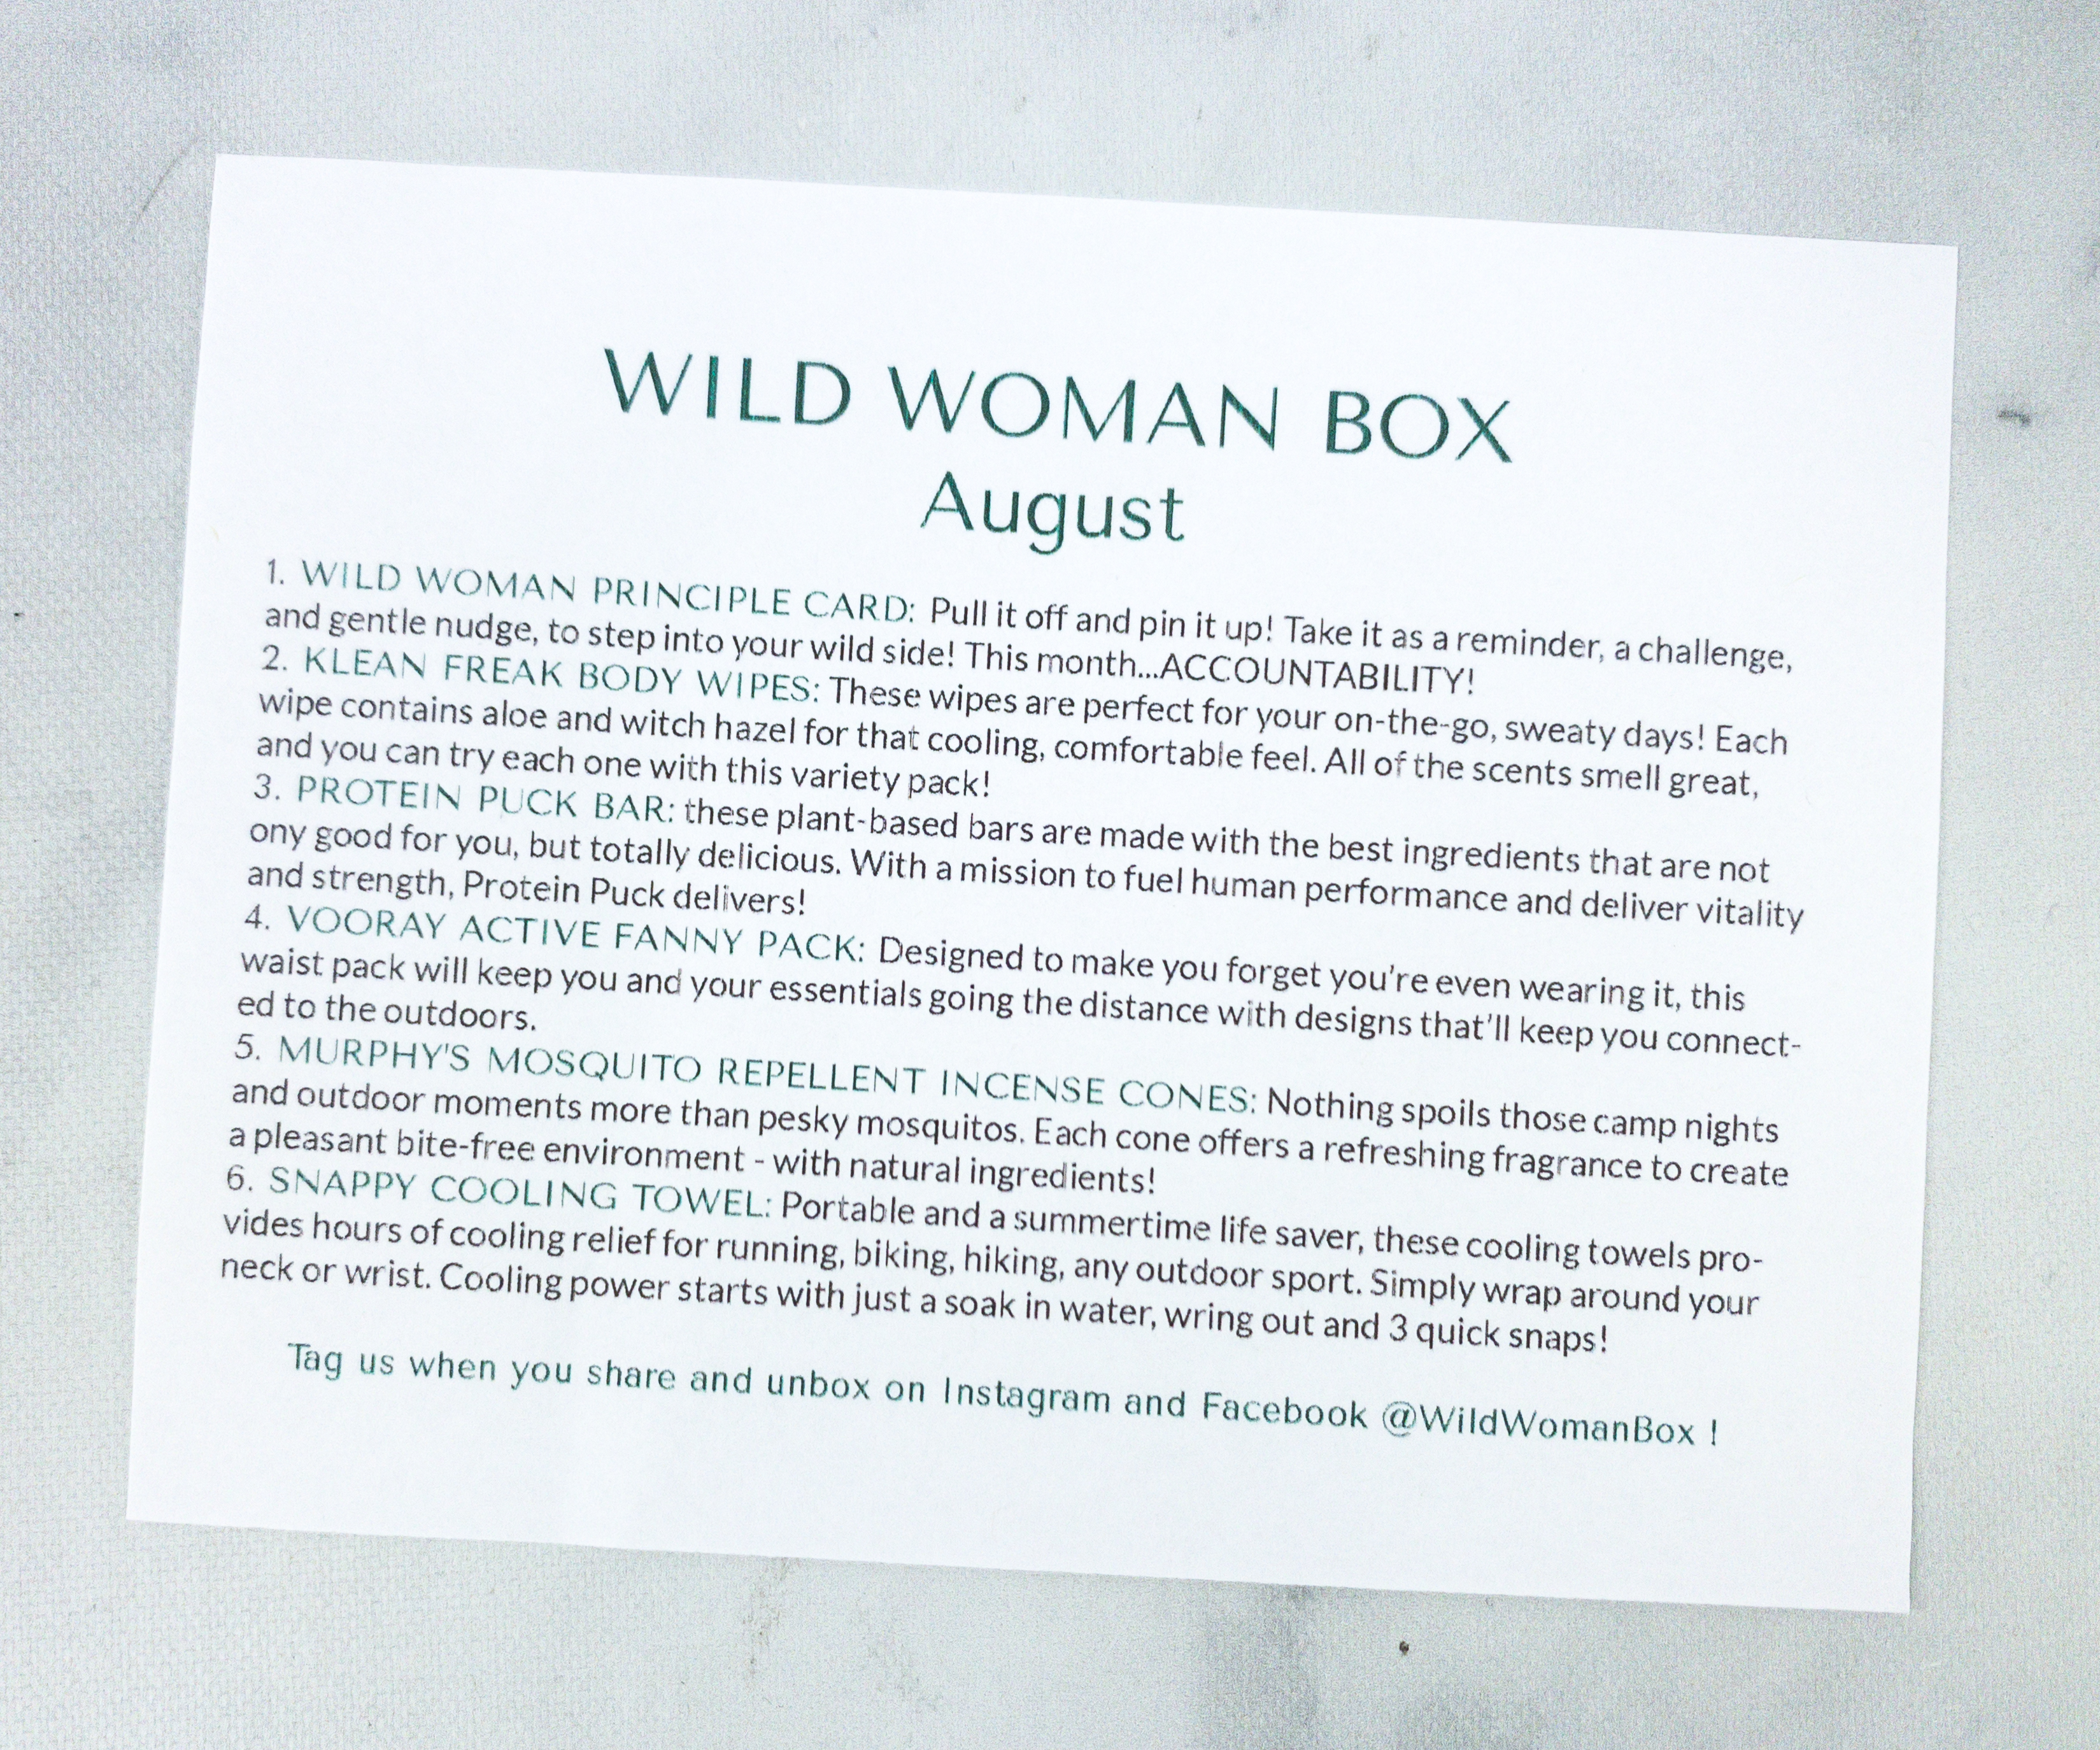 WILD WOMAN BOX
August
1. WILD WOMAN PRINCIPLE CARD: Pull it off and pin it up! Take it as a reminder, a challenge,
and gentle nudge, to step into your wild side! This month...ACCOUNTABILITY!
2. KLEAN FREAK BODY WIPES: These wipes are perfect for your on-the-go, sweaty days! Each
wipe contains aloe and witch hazel for that cooling, comfortable feel. All of the scents smell great,
and you can try each one with this variety pack!
3. PROTEIN PUCK BAR: these plant-based bars are made with the best ingredients that are not
ony good for you, but totally delicious. With a mission to fuel human performance and deliver vitality
and strength, Protein Puck delivers!
4. VOORAY ACTIVE FANNY PACK: Designed to make you forget you're even wearing it, this
waist pack will keep you and your essentials going the distance with designs that'll keep you connect-
ed to the outdoors.
5. MURPHY'S MOSQUITO REPELLENT INCENSE CONES: Nothing spoils those camp nights
and outdoor moments more than pesky mosquitos. Each cone offers a refreshing fragrance to create
a pleasant bite-free environment - with natural ingredients!
6. SNAPPY COOLING TOWEL: Portable and a summertime life saver, these cooling towels pro-
vides hours of cooling relief for running, biking, hiking, any outdoor sport. Simply wrap around your
neck or wrist. Cooling power starts with just a soak in water, wring out and 3 quick snaps!
Tag us when you share and unbox on Instagram and Facebook @WildWomanBox !